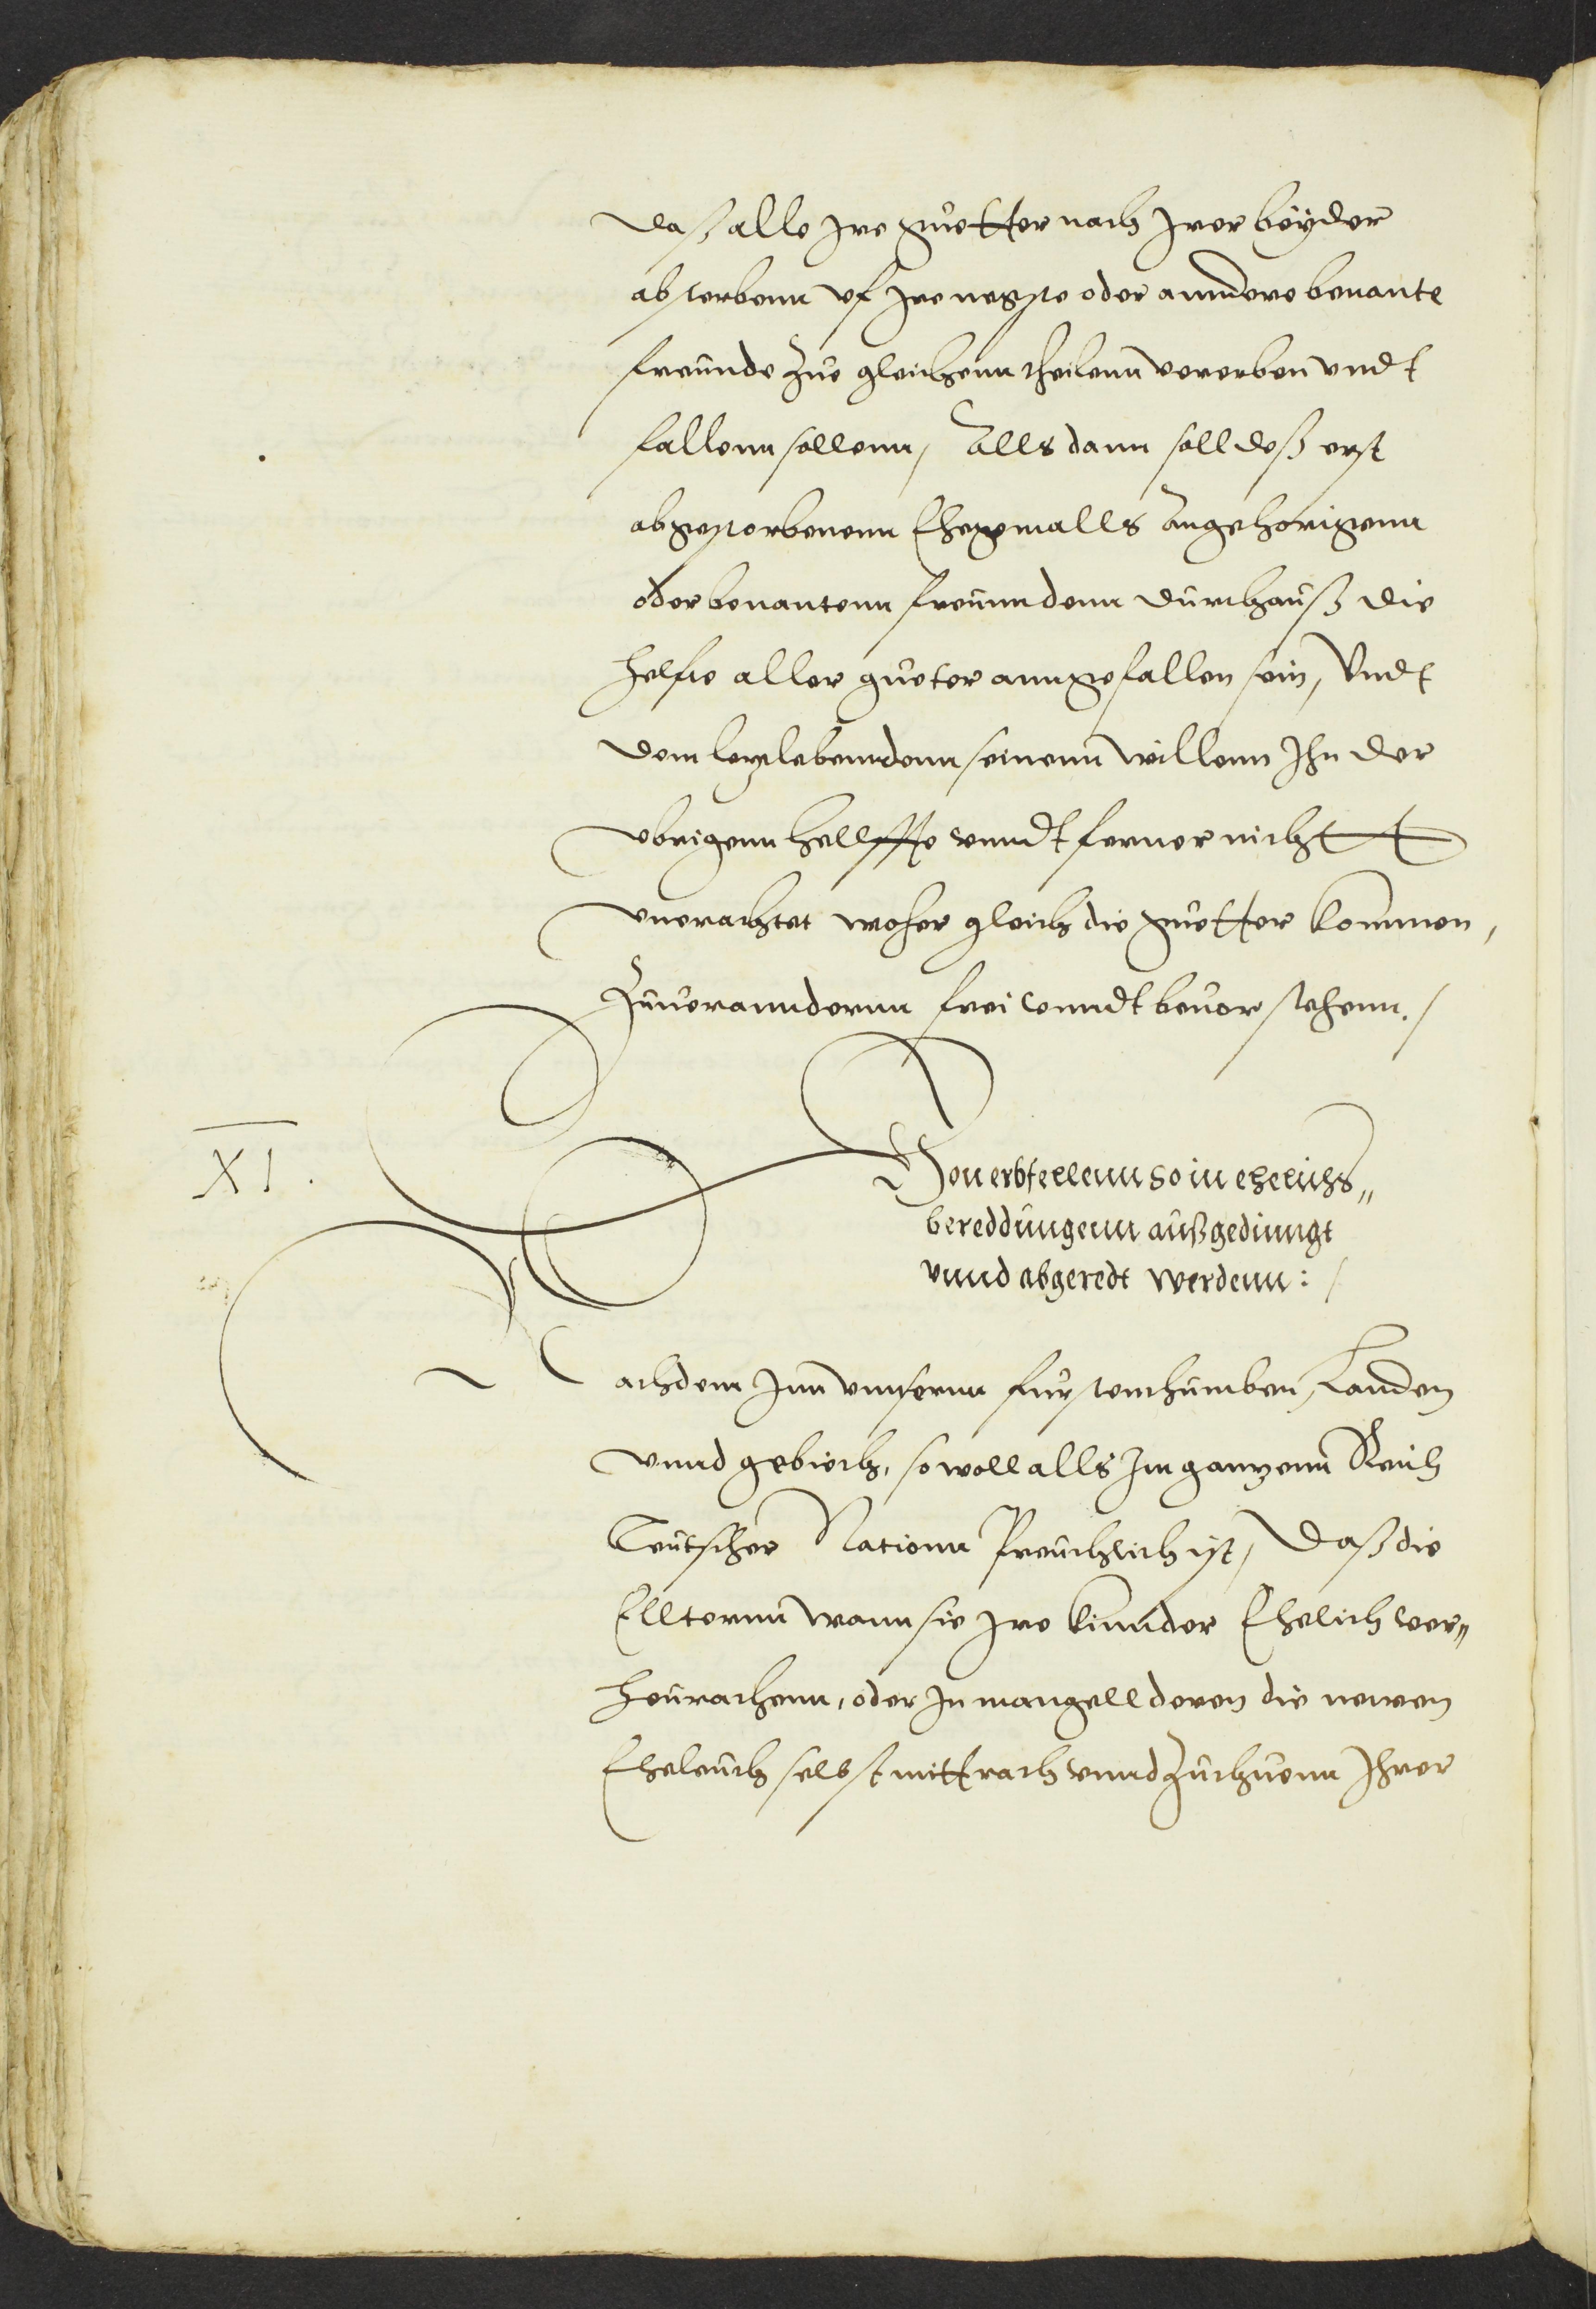 daß alle ire guetter nach irer beyder
absterbenn vf ire negste oder anndere benante
freunde zue gleichenn theilenn vererben vndt
fallenn sollenn, Alls dann soll deß erst
abgestorbenenn Ehegemalls Angehorigenn
oder benantenn freunndenn durchauß die
helfte aller gueter anngefallen sein, Vndt
dem letzlebenndenn seinenn willenn Ihn der
vbrigenn hellffte vnndt ferner nicht
vnerachtet woher gleich die guetter kommen,
Zuueranndernn frei vnndt beuor stehenn./
XI.
Von erbfellenn so in ehelichs„
bereddungenn außgedinngt
vnnd abgeredt werdenn:/
Nachdem Inn vnnsernn furstenthumben, Landen
vnnd gebieth, so woll alls Im ganzenn Reich
Teutscher Nationn Preuchlich ist, Daß die
Ellternn wann sie ire kinnder Ehelich ver„
heurathenn, oder In mangell deren die newen
Eheleuth selbst mitt rath vnnd Zuthuenn Ihrer